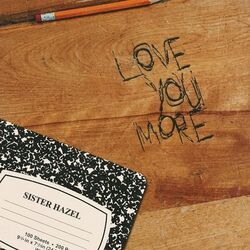 LOVE
YOU
MORE
SISTER HAZEL
100 Sheets • 200 P